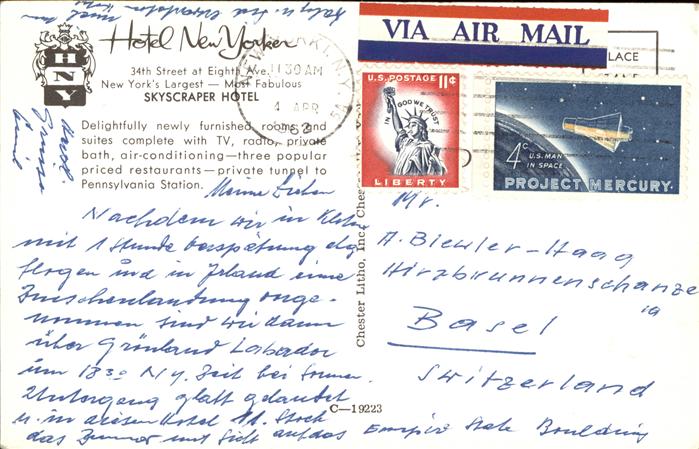 HNY
Hotel New Yorker
34th Street at Eighth Ave.
New York's Largest — Most Fabulous
SKYSCRAPER HOTEL
Delightfully newly furnished rooms and
suites complete with TV, radio, private
bath, air-conditioning—three popular
priced restaurants—private tunnel to
Pennsylvania Station.
Meine Lieben
Nachdem wir in
mit 1 Stunde Verspätung abge
flogen und in Irland eine
Zwischenlandung vorge-
nommen sind wir dann
über Grönland Labrador
um 18 30 N.Y. Zeit bei Sonnen
Untergang glatt gelandet
u. in diesem Hotel 11. Stock
das Zimmer mit Sicht auf das
Empire State Bouilding
VIA AIR MAIL
PLACE
11 30 AM
4 APR
U.S. POSTAGE 11¢
IN GOD WE TRUST
LIBERTY
4c
U.S. MAN
IN SPACE
PROJECT MERCURY
Mr.
A. Biewler-Haag
Hirzbrunnenschanze
Basel
Switzerland
C—19223
Chester Litho, Inc., Chester